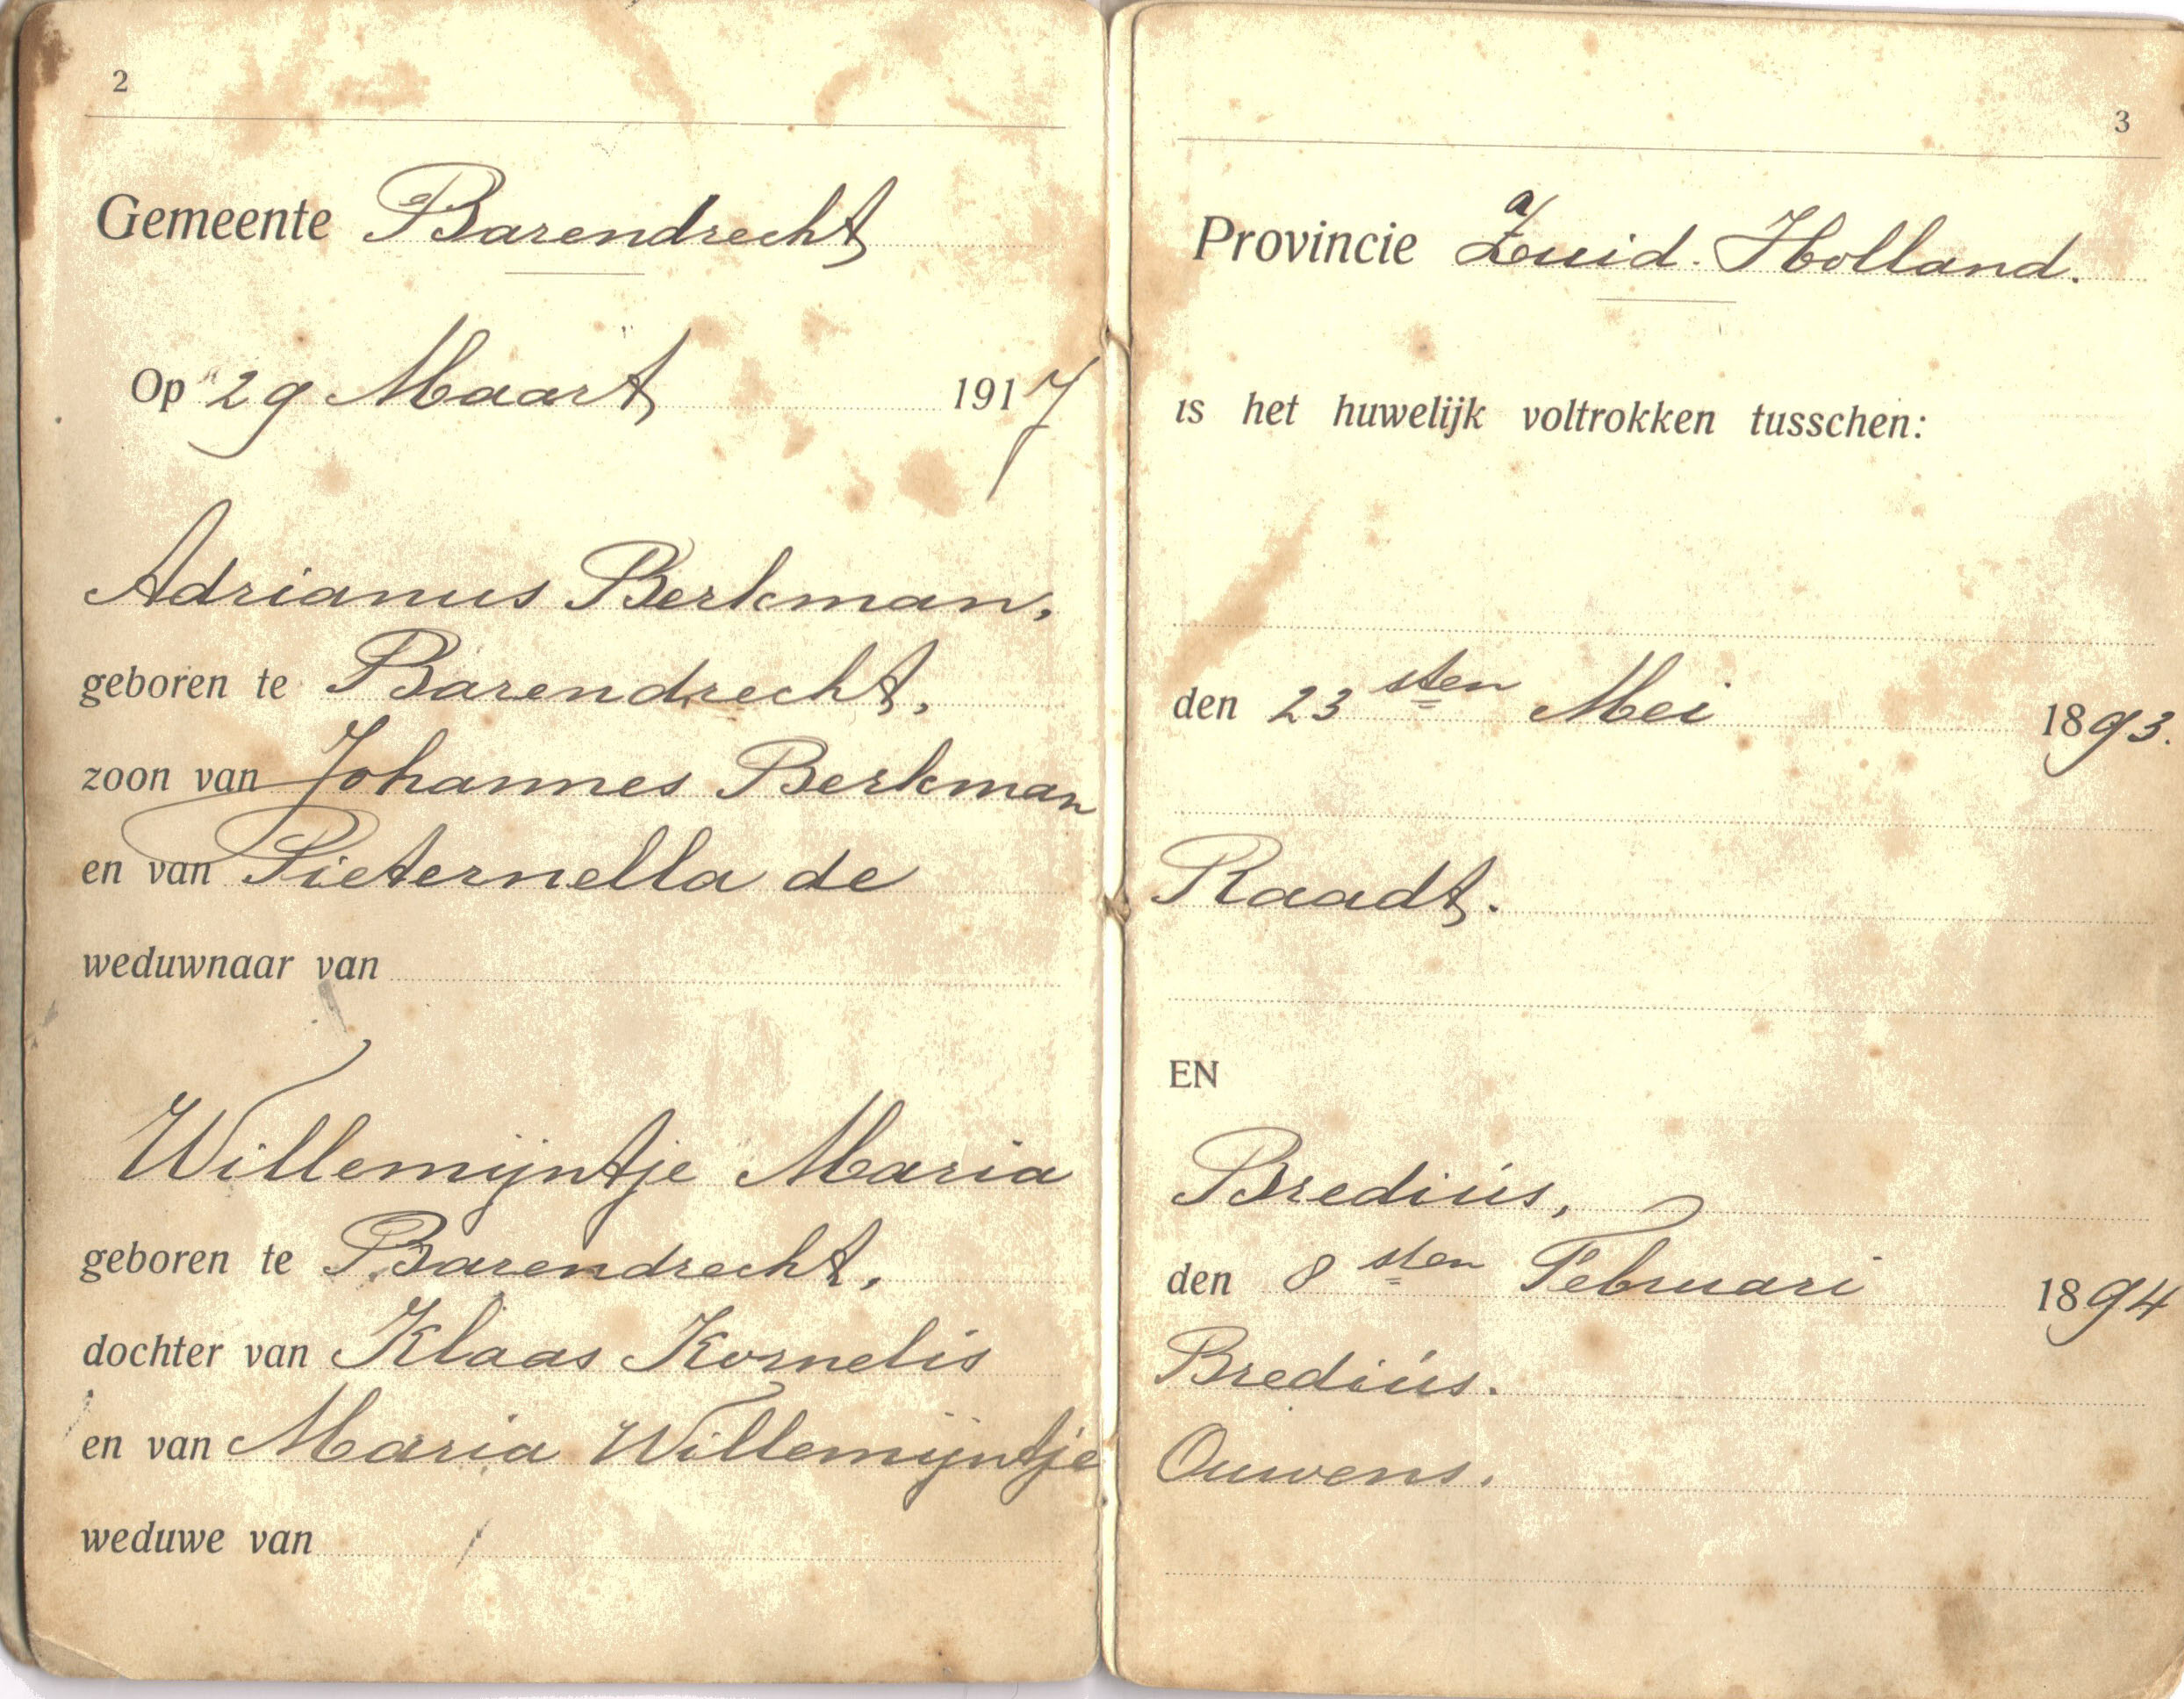 2
Gemeente Barendrecht
Op 29 Maart 1917
Adrianus Berkman,
geboren te Barendrecht,
zoon van Johannes Berkman
en van Pieternella de
weduwnaar van
Willemijntje Maria
geboren te Barendrecht,
dochter van Klaas Kornelis
en van Maria Willemijntje
weduwe van
3
a
Provincie Zuid-Holland.
is het huwelijk voltrokken tusschen:
den 23sten Mei 1893.
Raadt.
EN
Bredius,
den 8sten Februari 1894
Bredius.
Ouwens.